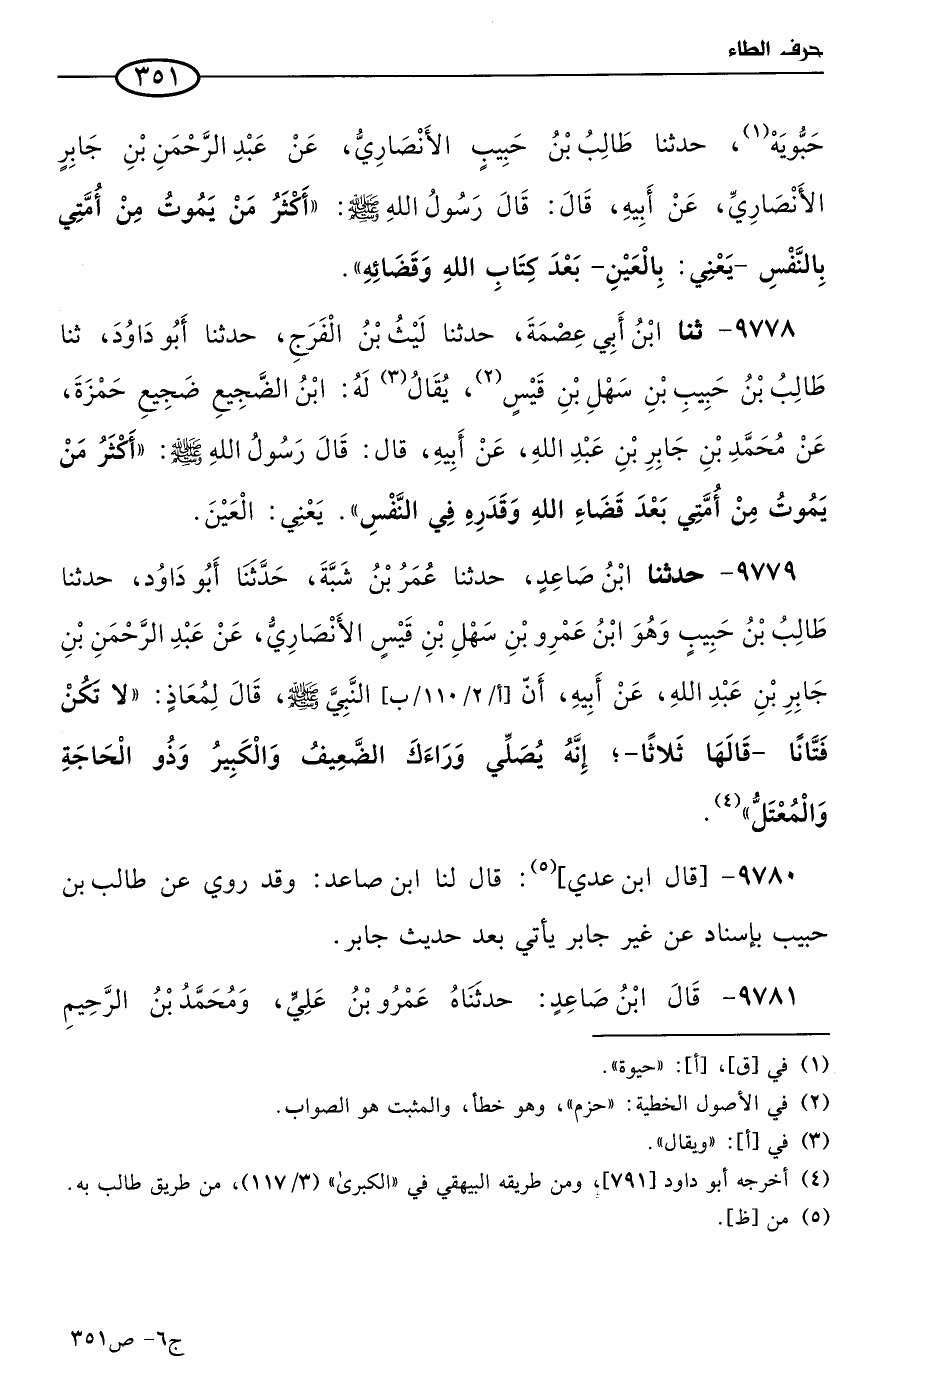 حرف الطاء
٣٥١
حَبُّويَهْ(١)، حدثنا طَالِبُ بْنُ حَبِيبٍ الأَنْصَارِيُّ، عَنْ عَبْدِ الرَّحْمَنِ بْنِ جَابِرٍ
الأَنْصَارِيِّ، عَنْ أَبِيهِ، قَالَ: قَالَ رَسُولُ اللهِ ﷺ: «أَكْثَرُ مَنْ يَمُوتُ مِنْ أُمَّتِي
بِالنَّفْسِ -يَعْنِي: بِالْعَيْنِ- بَعْدَ كِتَابِ اللهِ وَقَضَائِهِ».
٩٧٧٨- ثنا ابْنُ أَبِي عِصْمَةَ، حدثنا لَيْثُ بْنُ الْفَرَجِ، حدثنا أَبُو دَاوُدَ، ثنا
طَالِبُ بْنُ حَبِيبِ بْنِ سَهْلِ بْنِ قَيْسٍ(٢)، يُقَالُ(٣) لَهُ: ابْنُ الضَّجِيعِ ضَجِيعِ حَمْزَةَ،
عَنْ مُحَمَّدِ بْنِ جَابِرِ بْنِ عَبْدِ اللهِ، عَنْ أَبِيهِ، قال: قَالَ رَسُولُ اللهِ ﷺ: «أَكْثَرُ مَنْ
يَمُوتُ مِنْ أُمَّتِي بَعْدَ قَضَاءِ اللهِ وَقَدَرِهِ فِي النَّفْسِ». يَعْنِي: الْعَيْنَ.
٩٧٧٩- حدثنا ابْنُ صَاعِدٍ، حدثنا عُمَرُ بْنُ شَبَّةَ، حَدَّثَنَا أَبُو دَاوُد، حدثنا
طَالِبُ بْنُ حَبِيبٍ وَهُوَ ابْنُ عَمْرِو بْنِ سَهْلِ بْنِ قَيْسٍ الأَنْصَارِيُّ، عَنْ عَبْدِ الرَّحْمَنِ بْنِ
جَابِرِ بْنِ عَبْدِ اللهِ، عَنْ أَبِيهِ، أَنّ [أ/٢/١١٠/ب] النَّبِيَّ ﷺ، قَالَ لِمُعَاذٍ: «لا تَكُنْ
فَتَّانًا -قَالَهَا ثَلاثًا-؛ إِنَّهُ يُصَلِّي وَرَاءَكَ الضَّعِيفُ وَالْكَبِيرُ وَذُو الْحَاجَةِ
وَالْمُعْتَلُّ»(٤).
٩٧٨٠- [قال ابن عدي](٥): قال لنا ابن صاعد: وقد روي عن طالب بن
حبيب بإسناد عن غير جابر يأتي بعد حديث جابر.
٩٧٨١- قَالَ ابْنُ صَاعِدٍ: حدثنَاهُ عَمْرُو بْنُ عَلِيٍّ، وَمُحَمَّدُ بْنُ الرَّحِيمِ
(١) في [ق]، [أ]: «حيوة».
(٢) في الأصول الخطية: «حزم»، وهو خطأ، والمثبت هو الصواب.
(٣) في [أ]: «ويقال».
(٤) أخرجه أبو داود [٧٩١]، ومن طريقه البيهقي في «الكبرىٰ» (٣/١١٧)، من طريق طالب به.
(٥) من [ظ].
ج٦- ص٣٥١